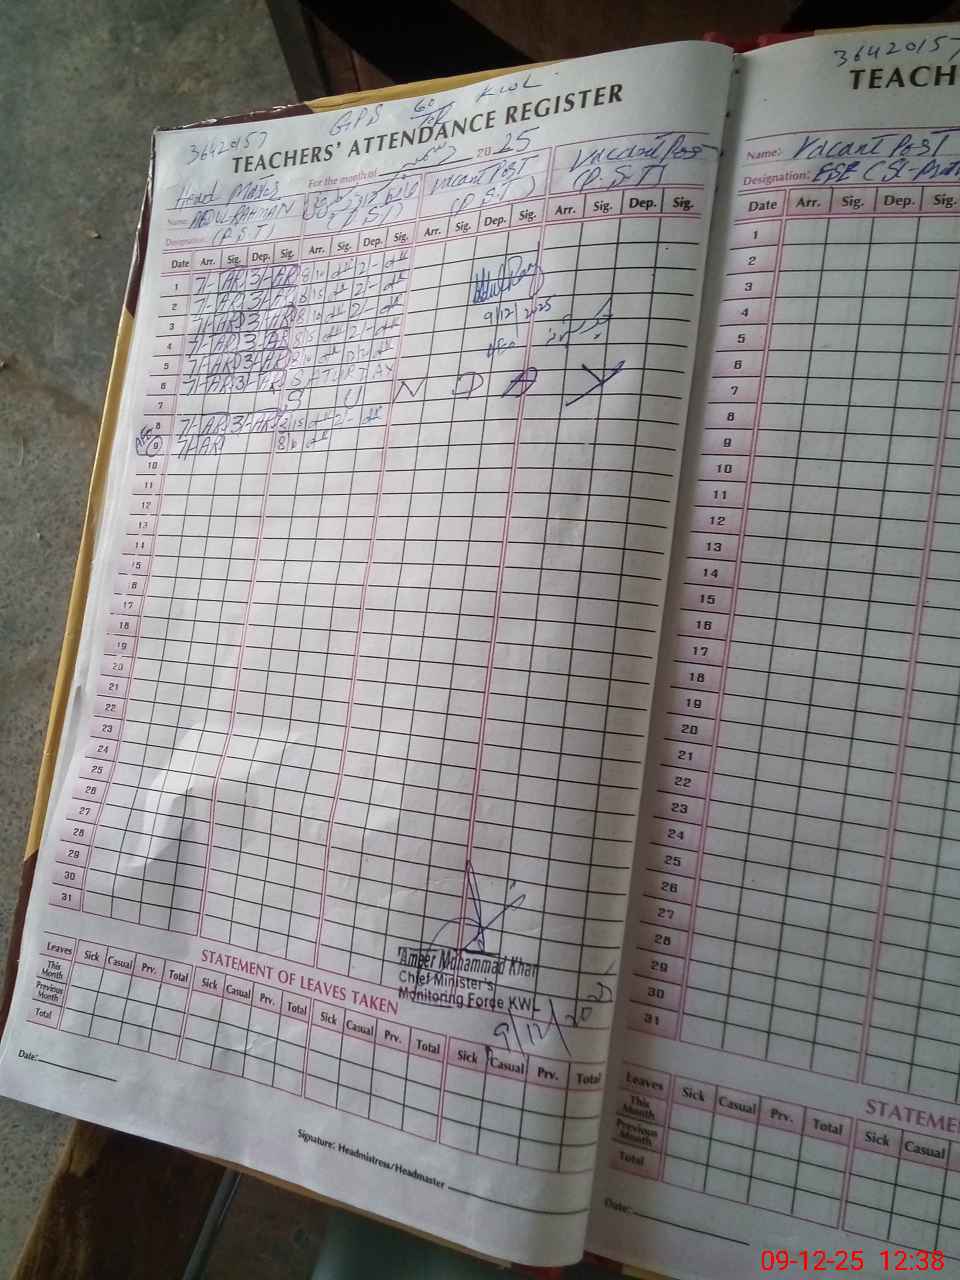 36420157 GPS 60/TDR KWL
TEACHERS' ATTENDANCE REGISTER
For the month of 2025
Head Master
Name: ABDUL RAHMAN
Vacant Post
Vacant Post
Designation: (P.S.T) (P.S.T) (P.S.T) (P.S.T)
Date Arr. Sig. Dep. Sig. Arr. Sig. Dep. Sig. Arr. Sig. Dep. Sig. Arr. Sig. Dep. Sig.
1 7/- AR 3/- AR 8/10 2/-
2 7/- AR 3/- AR 8/15 2/-
3 7/- AR 3/- AR 8/10 2/-
4 7/- AR 3/- AR 8/5 2/-
9/12/2025
5 7/- AR 3/- AR
6 7/- AR 3/- AR SATURDAY
7 S U N D A Y
8 7/- AR 3/- AR 8/15 2/-
9 7/- AR
10
11
12
13
14
15
16
17
18
19
20
21
22
23
24
25
26
27
28
29
30
31
Ameer Muhammad Khan
Chief Minister's
Monitoring Force KWL
9/12/2025
STATEMENT OF LEAVES TAKEN
Leaves Sick Casual Prv. Total Sick Casual Prv. Total Sick Casual Prv. Total Sick Casual Prv. Total
This Month
Previous Month
Total
Date:
Signature: Headmistress/Headmaster
36420157
TEACH
Name: Vacant Post
Designation: ESE (Sc-Math
Date Arr. Sig. Dep. Sig.
1
2
3
4
5
6
7
8
9
10
11
12
13
14
15
16
17
18
19
20
21
22
23
24
25
26
27
28
29
30
31
STATEME
Leaves Sick Casual Prv. Total Sick Casual
This Month
Previous Month
Total
Date:
09-12-25 12:38